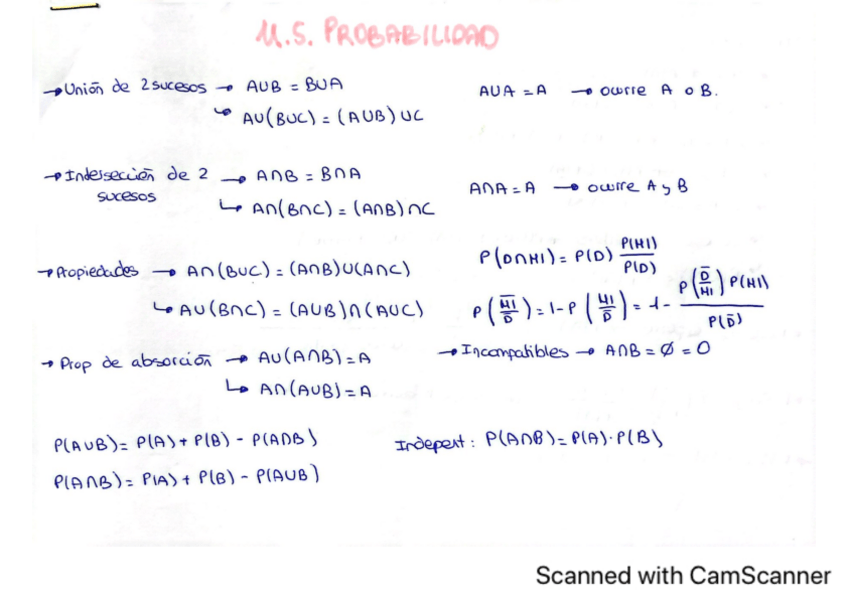 U.S. PROBABILIDAD
→ Unión de 2 sucesos → A∪B = B∪A
↳ A∪(B∪C) = (A∪B)∪C
A∪A = A → ocurre A o B.
→ Intersección de 2 sucesos → A∩B = B∩A
↳ A∩(B∩C) = (A∩B)∩C
A∩A = A → ocurre A y B
→ Propiedades → A∩(B∪C) = (A∩B)∪(A∩C)
↳ A∪(B∩C) = (A∪B)∩(A∪C)
P(D∩H1) = P(D) P(H1)/P(D)
P(H̅1̅/D̅) = 1-P(H1/D̅) = 1- P(D̅/H1) P(H1)/P(D̅)
→ Prop de absorción → A∪(A∩B) = A
↳ A∩(A∪B) = A
→ Incompatibles → A∩B = ∅ = 0
P(A∪B) = P(A) + P(B) - P(A∩B)
P(A∩B) = P(A) + P(B) - P(A∪B)
Indepent: P(A∩B) = P(A)·P(B)
Scanned with CamScanner